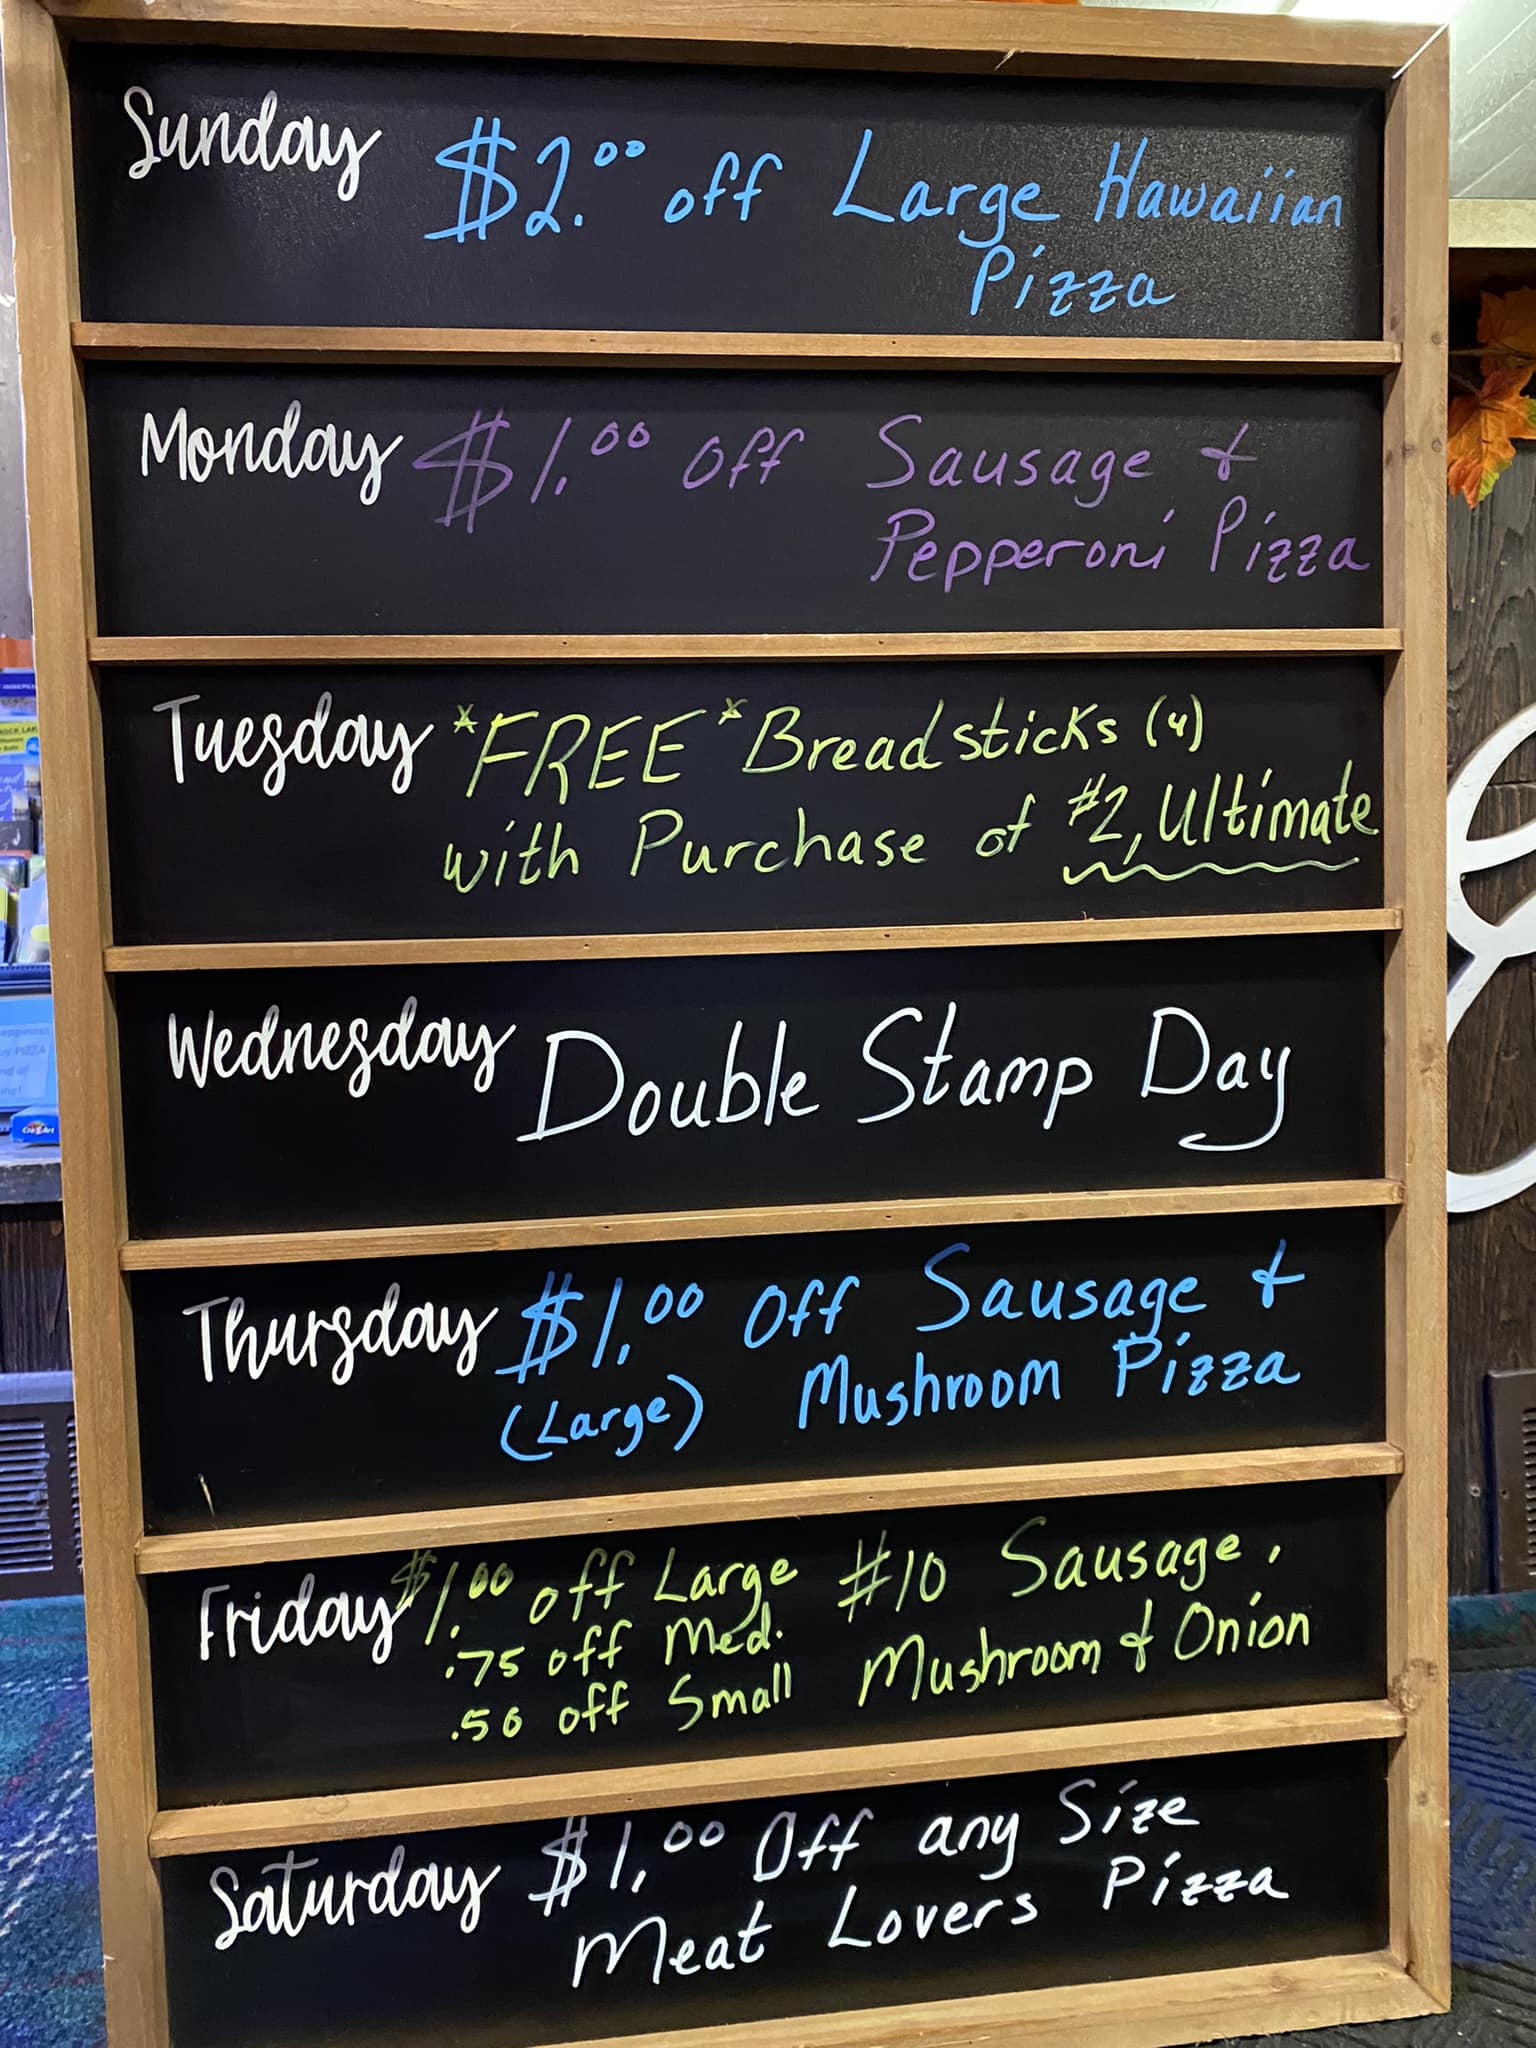 Sunday
$2.00 off Large Hawaiian
Pizza
Monday
$1.00 off Sausage &
Pepperoni Pizza
Tuesday
*FREE* Breadsticks (4)
with Purchase of #2, Ultimate
Wednesday
Double Stamp Day
Thursday
$1.00 Off Sausage &
(Large) Mushroom Pizza
Friday
$1.00 off Large #10 Sausage,
.75 off Med. Mushroom & Onion
.50 off Small
Saturday
$1.00 Off any Size
Meat Lovers Pizza
PIZZA
Cra-Z-Art